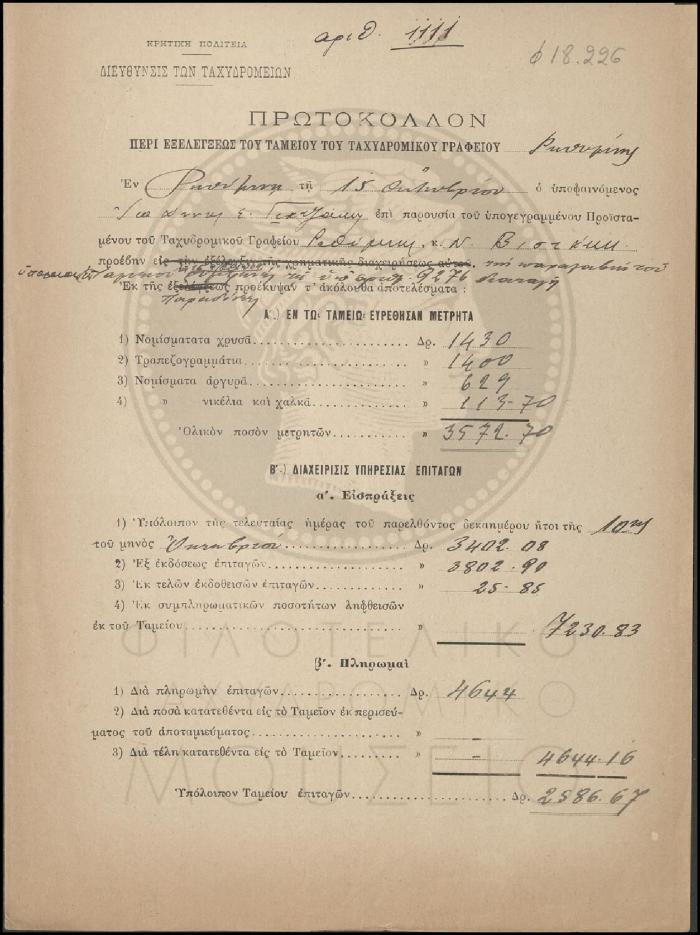 ΚΡΗΤΙΚΗ ΠΟΛΙΤΕΙΑ
αριθ. 1111
φ18.226
ΔΙΕΥΘΥΝΣΙΣ ΤΩΝ ΤΑΧΥΔΡΟΜΕΙΩΝ
ΠΡΩΤΟΚΟΛΛΟΝ
ΠΕΡΙ ΕΞΕΛΕΓΞΕΩΣ ΤΟΥ ΤΑΜΕΙΟΥ ΤΟΥ ΤΑΧΥΔΡΟΜΙΚΟΥ ΓΡΑΦΕΙΟΥ Ρεθύμνης
Ἐν Ρεθύμνῃ τῇ 15 Ὀκτωβρίου ὁ ὑποφαινόμενος
ἐπὶ παρουσία τοῦ ὑπογεγραμμένου Προϊστα-
μένου τοῦ Ταχυδρομικοῦ Γραφείου Ρεθύμνης κ. Ν.
προέδην εἰς τὴν ἐξέλεγξιν τῆς χρηματικῆς διαχειρίσεως αὐτοῦ, τὴν παραλαβὴν τοῦ
ὑπ' ἀριθ. 9276
Ἐκ τῆς ἐξελέγξεως προέκυψαν τ' ἀκόλουθα ἀποτελέσματα :
Α΄.) ΕΝ ΤΩι ΤΑΜΕΙΩι ΕΥΡΕΘΗΣΑΝ ΜΕΤΡΗΤΑ
1) Νομίσματατα χρυσᾶ Δρ. 1430
2) Τραπεζογραμμάτια » 1400
3) Νομίσματα ἀργυρᾶ » 629
4) » νικέλια καὶ χαλκᾶ » 113-70
Ὁλικὸν ποσὸν μετρητῶν » 3572.70
Β΄.) ΔΙΑΧΕΙΡΙΣΙΣ ΥΠΗΡΕΣΙΑΣ ΕΠΙΤΑΓΩΝ
α΄. Εἰσπράξεις
1) Ὑπόλοιπον τῆς τελευταίας ἡμέρας τοῦ παρελθόντος δεκαημέρου ἤτοι τῆς 10ης
τοῦ μηνὸς Ὀκτωβρίου Δρ. 3402.08
2) Ἐξ ἐκδόσεως ἐπιταγῶν » 3802.90
3) Ἐκ τελῶν ἐκδοθεισῶν ἐπιταγῶν » 25-85
4) Ἐκ συμπληρωματικῶν ποσοτήτων ληφθεισῶν
ἐκ τοῦ Ταμείου » 7230.83
β΄. Πληρωμαὶ
1) Διὰ πληρωμὴν ἐπιταγῶν Δρ. 4644
2) Διὰ ποσὰ κατατεθέντα εἰς τὸ Ταμεῖον ἐκ περισεύ-
ματος τοῦ ἀποταμιεύματος » –
3) Διὰ τέλη κατατεθέντα εἰς τὸ Ταμεῖον » – 4644.16
Ὑπόλοιπον Ταμείου ἐπιταγῶν Δρ. 2586.67
ΦΙΛΟΤΕΛΙΚΟ
ΤΑΧΥΔΡΟΜΙΚΟ
ΜΟΥΣΕΙΟ